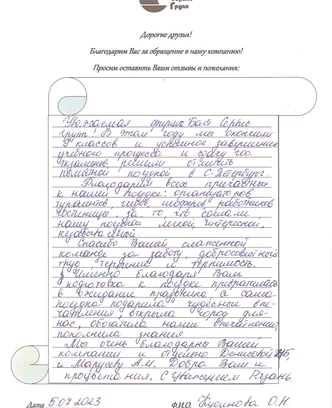 Групп
Дорогие друзья!
Благодарим Вас за обращение в нашу компанию!
Просим оставить Ваши отзывы и пожелания:
Уважаемая фирма Бас Сервис
Групп! В этом году мы окончили
9 классов и успешное завершение
учебного процесса и сдачу гос.
экзаменов решили отметить
памятной поездкой в С-Петербург.
Благодарим всех причастных
к нашей поездке: организаторов,
турагентов, гидов, шоферов, работников
гостиницы за то, что сделали
нашу поездку легкой, интересной,
Спасибо Вашей слаженной
команде за работу, добросовестный
труд, терпение и терпимость.
Именно благодаря Вам
подготовка к поездке превратилась
в ожидание праздника, а сама
поездка подарила чудесные впе-
чатления, открыла город для
нас, обогатила наши впечатления,
пополнила знания.
Мы очень благодарны Вашей
компании и отдельно Денисовой
и Марусеву А.М. Добра Вам и
процветания. С Уважением Рязань
Дата 5.07.2023 Ф.И.О. О.Н.